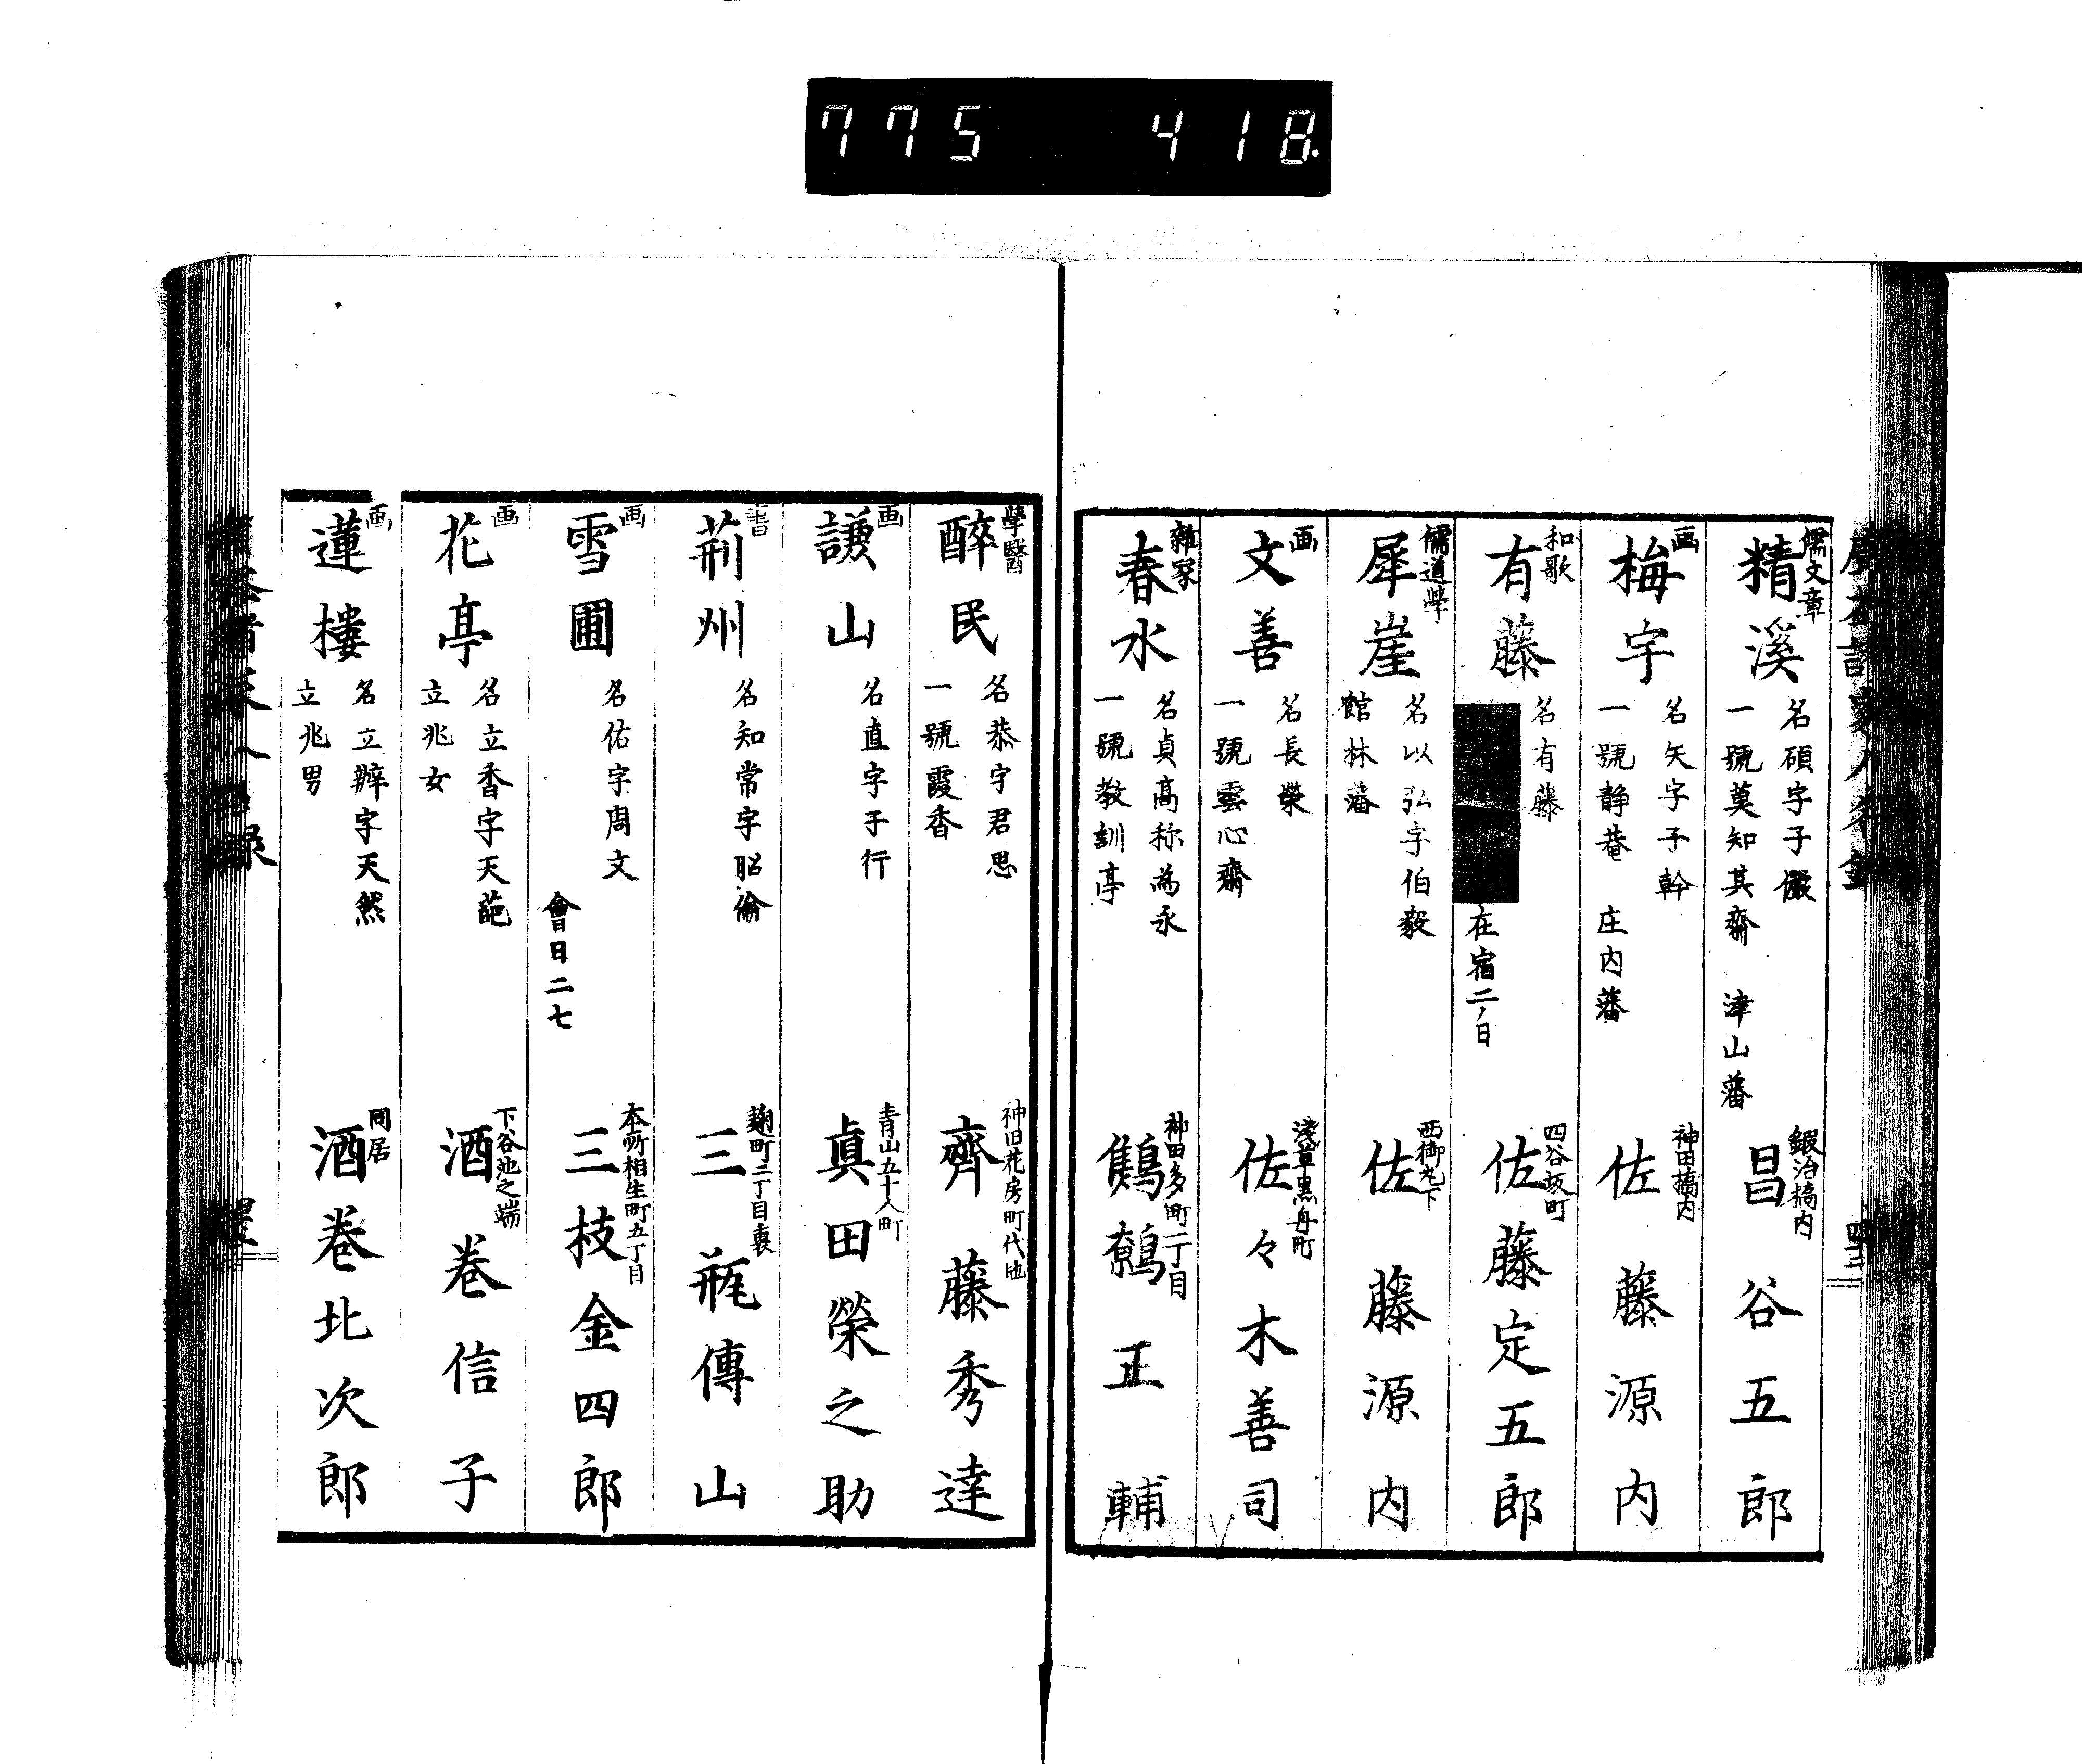 775 418
儒文章
精溪
名碩字子儼
一號莫知其齋 津山藩
鍛冶橋内
昌谷五郎
画
梅宇
名矢字子幹
一號静菴 庄内藩
神田橋内
佐藤源内
和歌
有藤
名有藤
在宿二ノ日
四谷坂町
佐藤定五郎
儒道學
犀崖
名以弘字伯毅
館林藩
西御丸下
佐藤源内
画
文善
名長榮
一號雲心齋
淺草黒舟町
佐々木善司
雜家
春水
名貞高称為永
一號教訓亭
神田多町二丁目
鷦鷯正輔
學醫
醉民
名恭字君思
一號霞香
神田花房町代地
齊藤秀達
画
謙山
名直字子行
青山五十人町
眞田榮之助
書
荊州
名知常字昭倫
麹町二丁目裏
三瓶傳山
画
雪圃
名佑字周文
會日二七
本所相生町五丁目
三枝金四郎
画
花亭
名立香字天葩
立兆女
下谷池之端
酒巻信子
画
蓮樓
名立辨字天然
立兆男
同居
酒巻北次郎